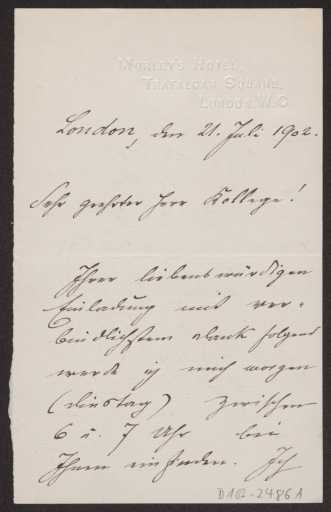 MORLEY'S HOTEL,
TRAFALGAR SQUARE,
LONDON, W.C.
London, den 21. Juli 1902.
Sehr geehrter Herr Kollege!
Ihrer liebenswürdigen
Einladung mit ver-
bindlichstem Dank folgend
werde ich mich morgen
(Dinstag) zwischen
6 u. 7 Uhr bei
Ihnen einfinden. Ich
D 102-2486A